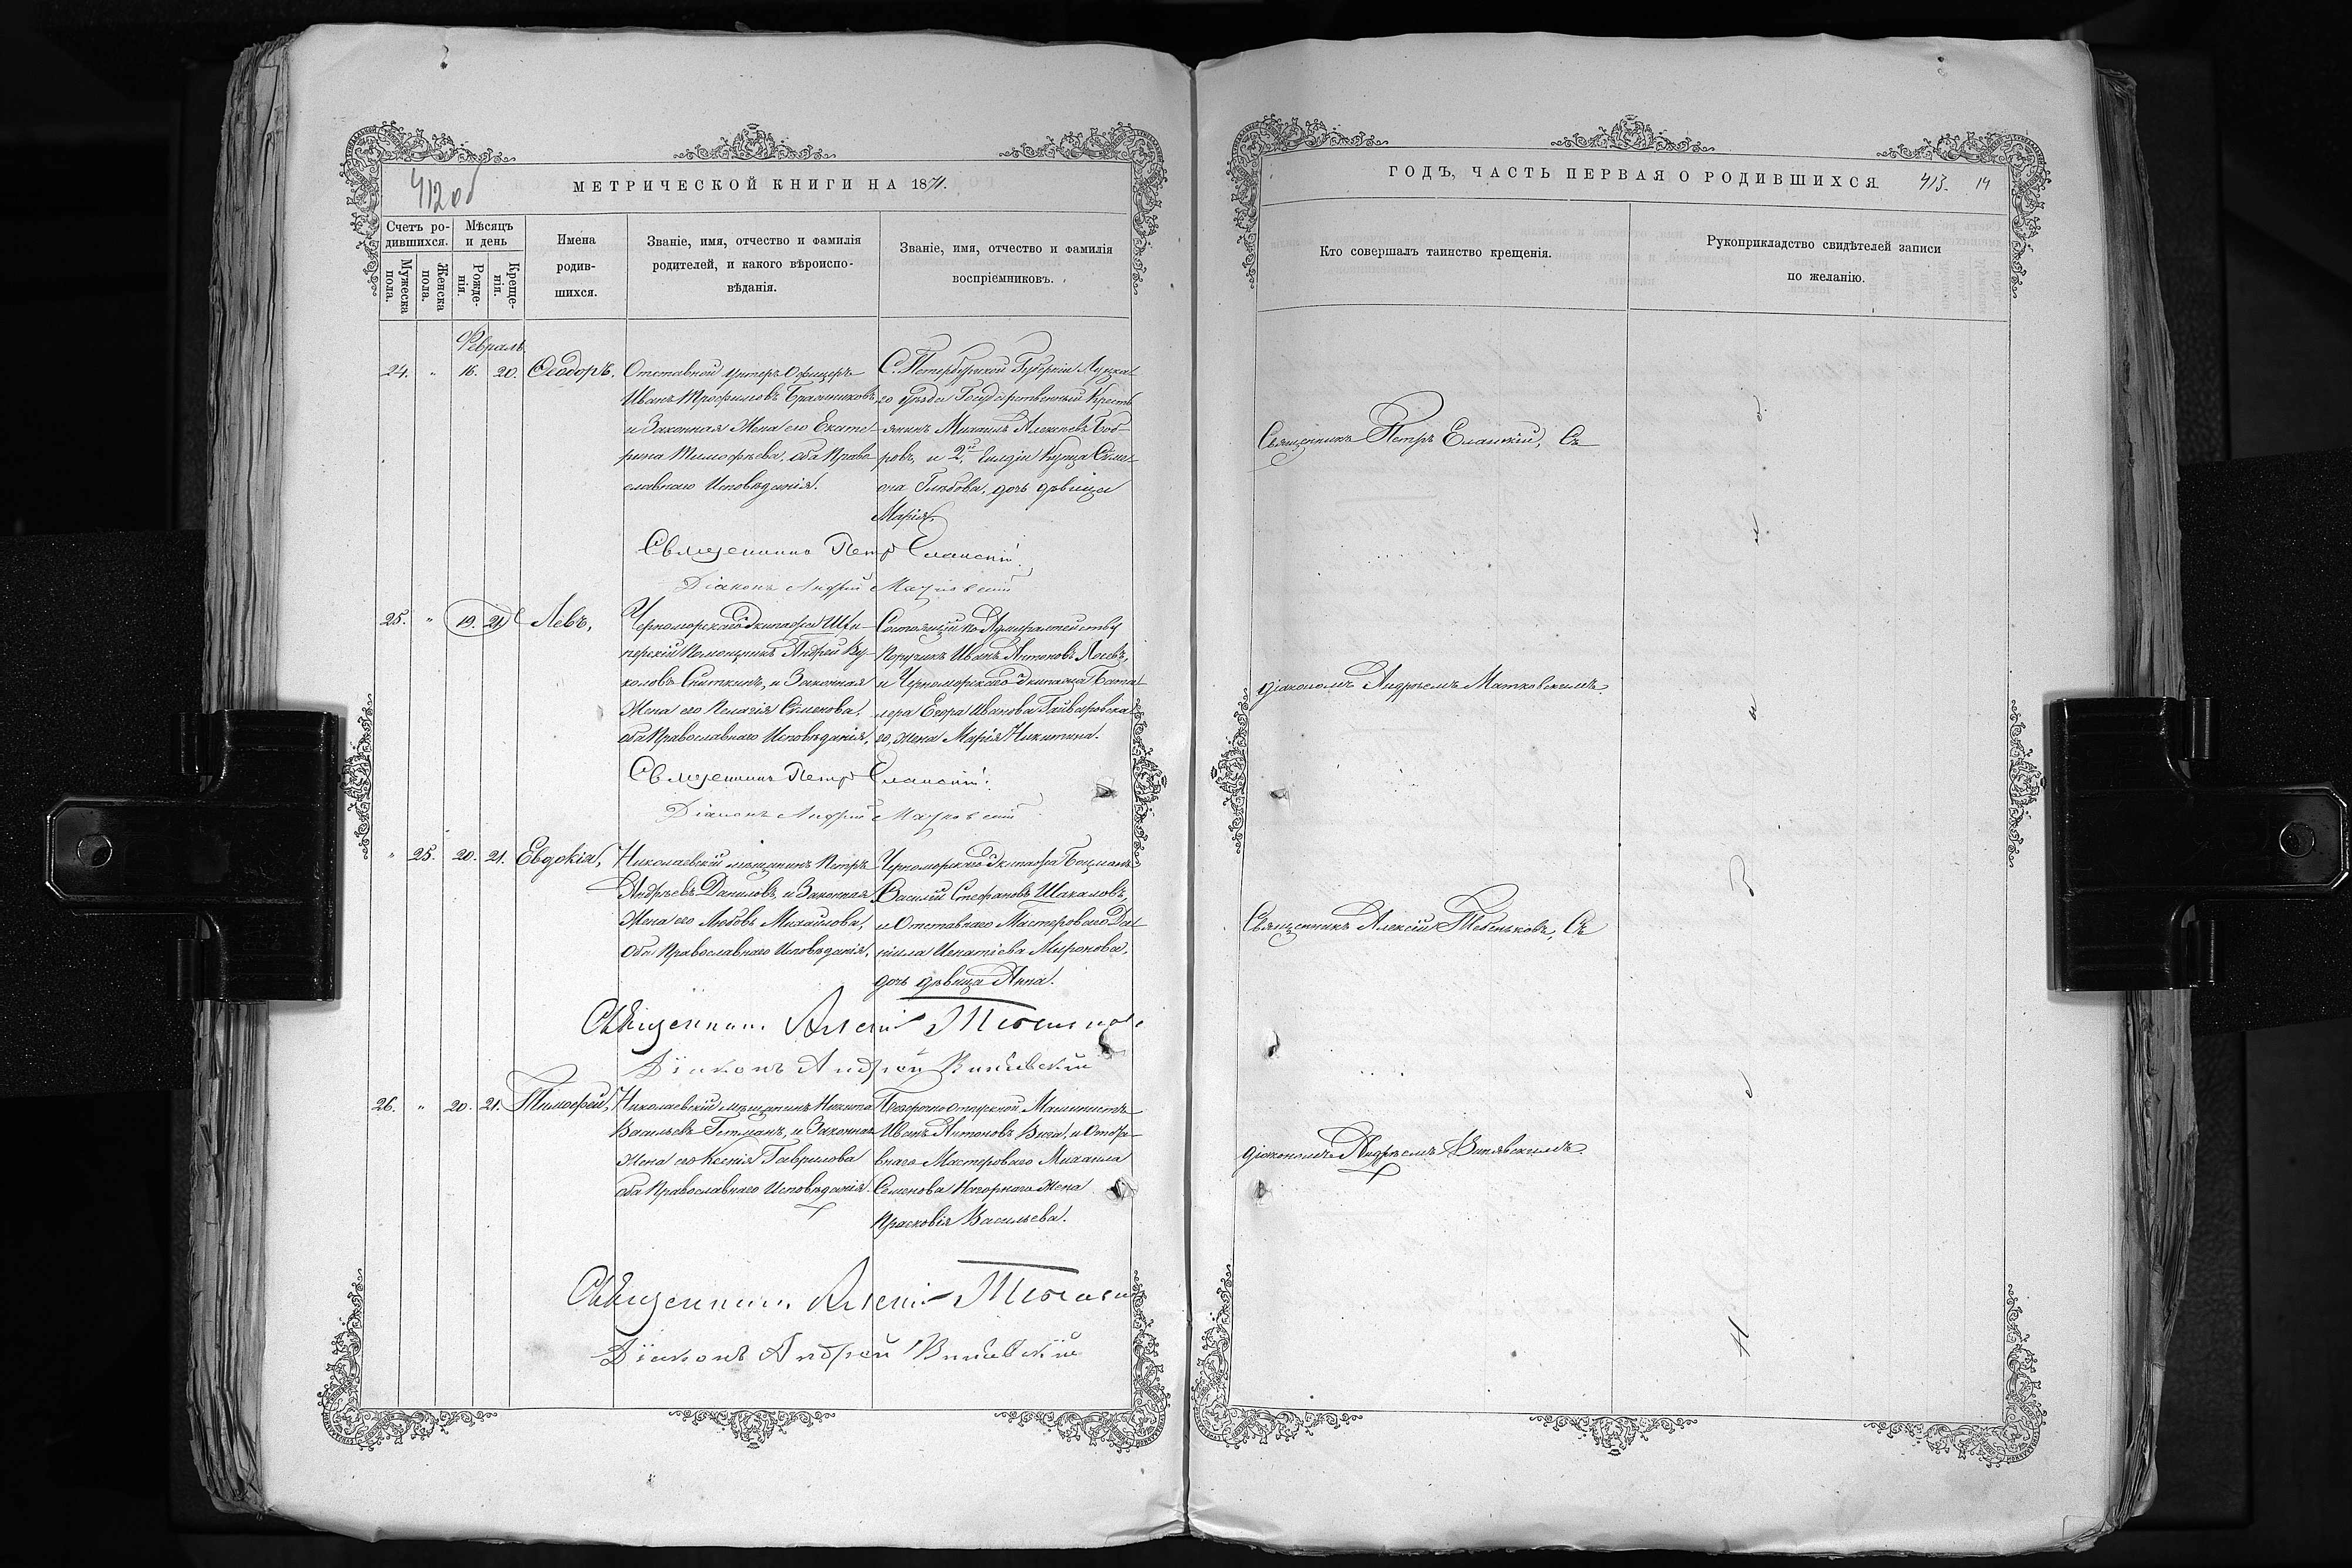 412 об
МЕТРИЧЕСКОЙ КНИГИ НА 1871.
Счетъ родившихся.
Мѣсяцъ и день
Мужеска пола.
Женска пола.
Рожденія.
Крещенія.
Имена родившихся.
Званіе, имя, отчество и фамилія
родителей, и какого вѣроиспо-
вѣданія.
Званіе, имя, отчество и фамилія
воспріемниковъ.
Февраль
24. " 16. 20. Ѳеодоръ.
Отставной унтеръ-Офицеръ
Иванъ Трофимовъ Бражниковъ,
и Законная Жена его Екате-
рина Тимофѣева, оба Право-
славнаго Исповѣданія.
С. Петербургской Губерніи Луцка-
го Уѣзда Государственный Кресть-
янинъ Михаилъ Алексѣевъ Боб-
ровъ, и 2й Гильдіи Купца Симе-
она Глѣбова, дочь дѣвица
Марія.
Священникъ Петръ Еланскій.
Діаконъ Андрей Матковскій
25. " 19. 21. Левъ,
Черноморскаго Экипажа Шхи-
перскій Помощникъ Андрей Ву-
коловъ Сниткинъ, и Законная
Жена его Пелагія Симеонова,
оба Православнаго Исповѣданія,
Состоящій по Адмиралтейству
Поручикъ Иванъ Антоновъ Лосевъ,
и Черноморскаго Экипажа Бата-
лера Егора Иванова Гайваровска-
го, жена Марія Никитина.
Священникъ Петръ Еланскій.
Діаконъ Андрей Матковскій
" 25. 20. 21. Евдокія,
Николаевскій мѣщанинъ Петръ
Андрѣевъ Даниловъ, и Законная
Жена его Любовь Михайлова,
Оба Православнаго Исповѣданія,
Черноморскаго Экипажа Боцманъ
Василій Стефановъ Шакаловъ,
и Отставнаго Мастероваго Да-
ніила Игнатіева Миронова,
дочь дѣвица Анна.
Священникъ Алексій
Діаконъ Андрей
26. " 20. 21. Тимофей,
Николаевскій мѣщанинъ Никита
Васильевъ Гетманъ, и Законная
Жена его Ксенія Гаврилова
оба Православнаго Исповѣданія.
Безсрочноотпускной Машинистъ
Иванъ Антоновъ и Отста-
внаго Мастероваго Михаила
Семенова Нагорнаго Жена
Прасковія Васильева.
Священникъ Алексій
Діаконъ Андрей
ГОДЪ, ЧАСТЬ ПЕРВАЯ О РОДИВШИХСЯ.
413. 14
Кто совершалъ таинство крещенія.
Рукоприкладство свидѣтелей записи
по желанію.
Священникъ Петръ Еланскій, Съ
діакономъ Андреемъ Матковскимъ.
Священникъ Алексій Тебеньковъ, Съ
діакономъ Андреемъ Винявскимъ.